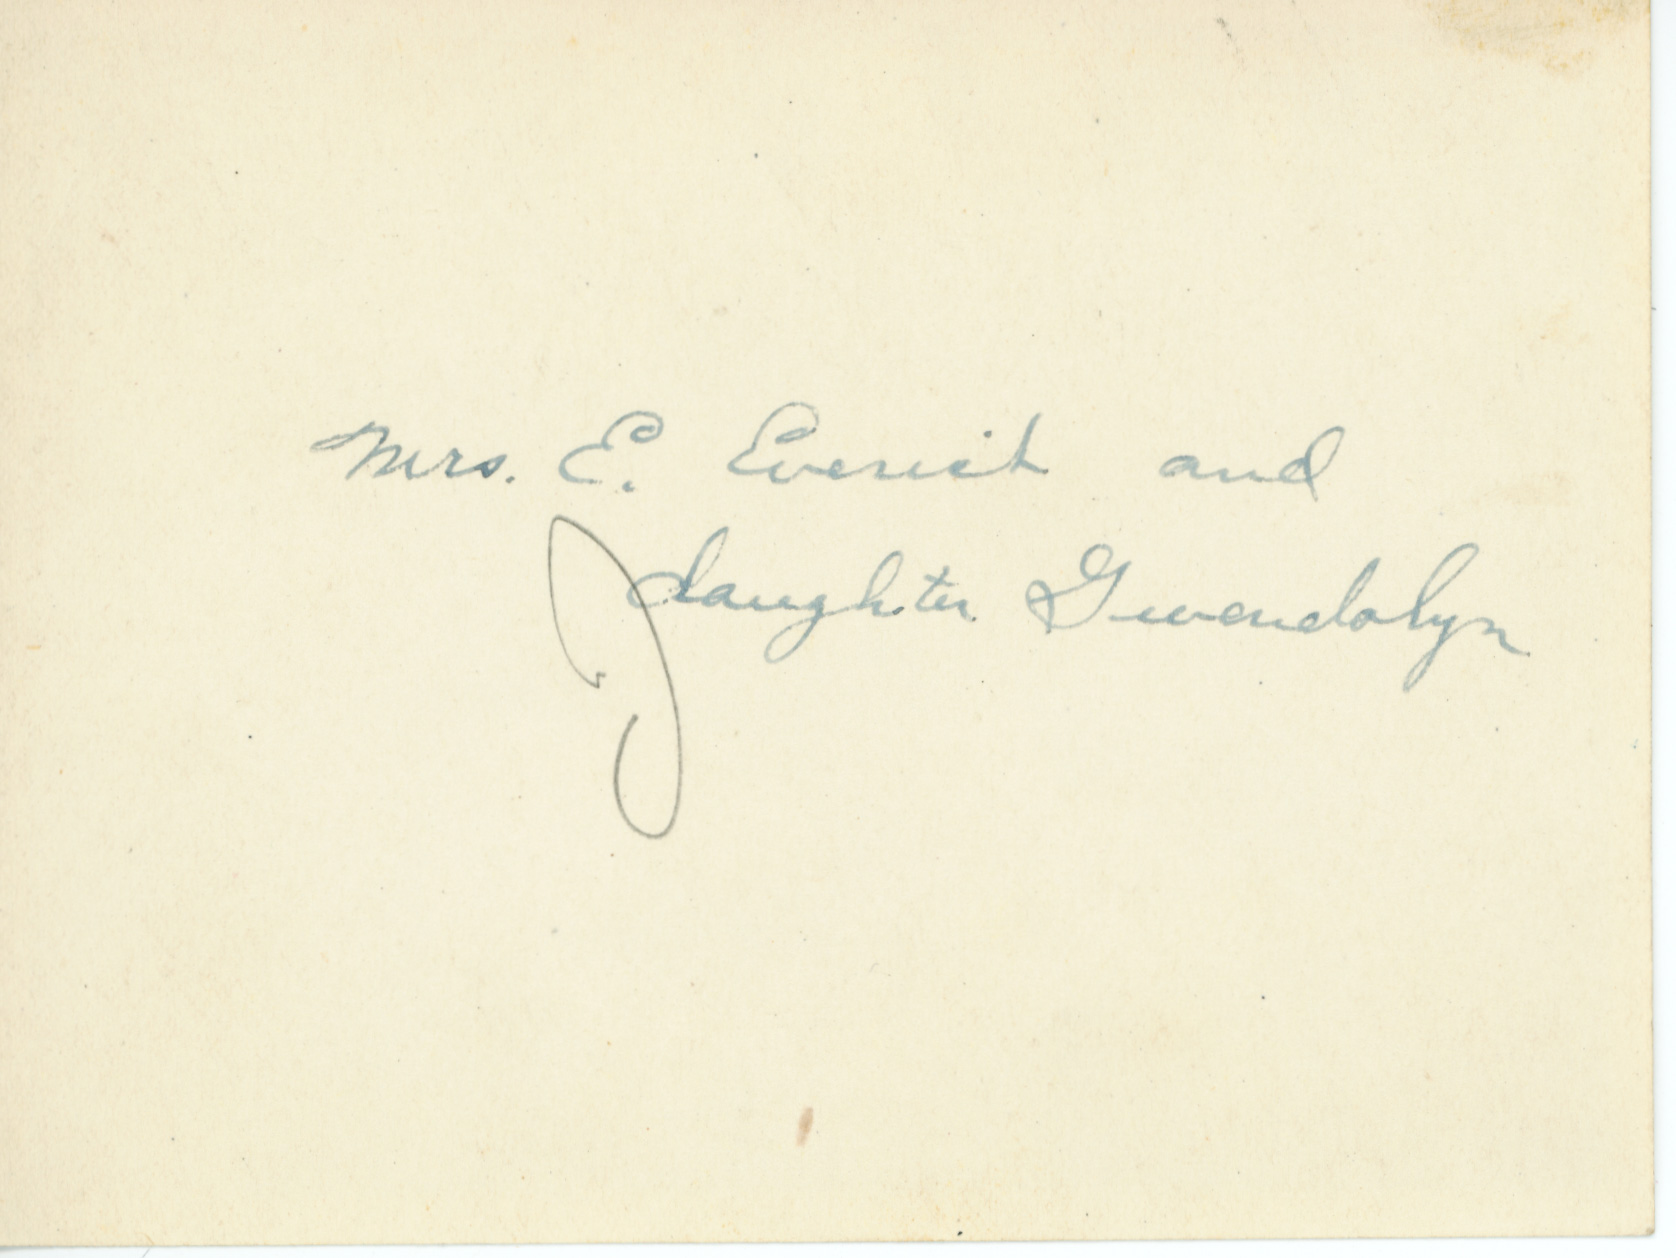 Mrs. E. and
daughter Gwendolyn